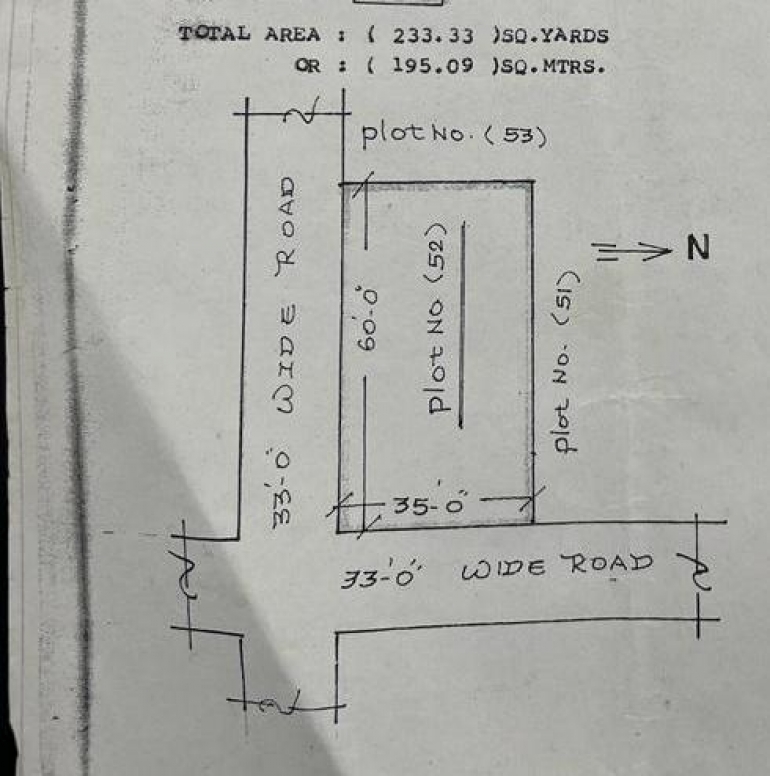 TOTAL AREA : ( 233.33 )SQ.YARDS
OR : ( 195.09 )SQ.MTRS.
plot No. (53)
33'-0" WIDE ROAD
60'-0"
plot No (52)
plot No. (51)
N
35'-0"
33'-0" WIDE ROAD